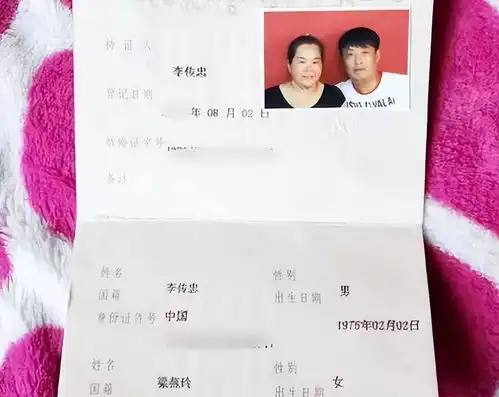 持证人
李传忠
登记日期
年 08 月 02 日
结婚证字号
备注
姓名 性别
国籍 李传忠 出生日期 男
身份证件号 中国 1976年02月02日
姓名 性别
国籍 梁燕玲 出生日期 女